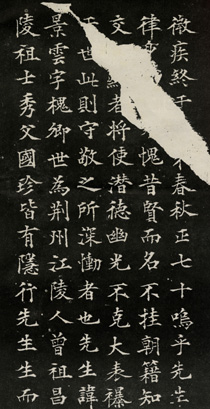 微疾終于春秋正七十嗚乎先生
律愧昔賢而名不挂朝籍知
交者將使潛德幽光不克大表襮
于世此則守敬之所深慟者也先生諱
景雲字槐卿世為荆州江陵人曾祖昌
陵祖士秀父國珍皆有隱行先生生而